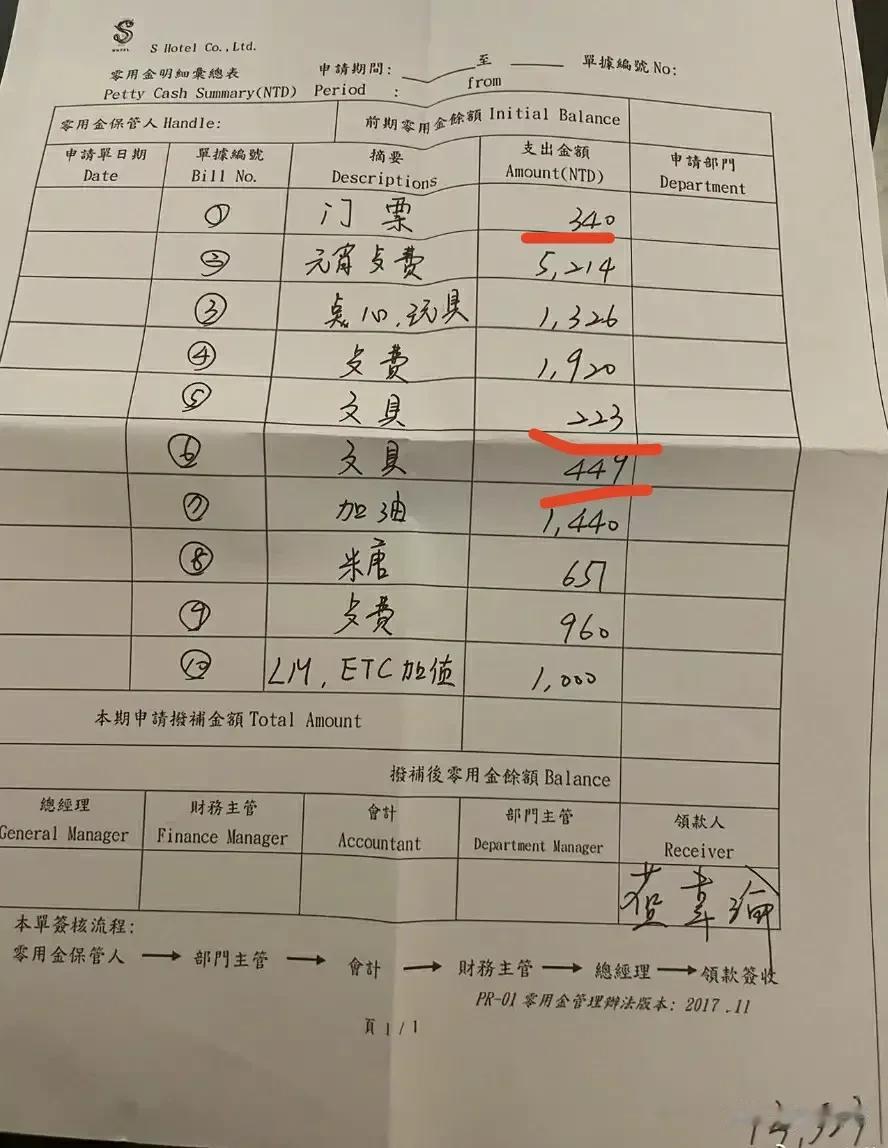 S
HOTEL
S Hotel Co.,Ltd.
零用金明細彙總表 申請期間: 至 單據編號 No:
Petty Cash Summary(NTD) Period : from
零用金保管人 Handle: 前期零用金餘額 Initial Balance
申請單日期 單據編號 摘要 支出金額 申請部門
Date Bill No. Descriptions Amount(NTD) Department
① 门票 340
② 元宵 費 5,214
③ 点心,玩具 1,326
④ 費 1,920
⑤ 文具 223
⑥ 文具 449
⑦ 加油 1,440
⑧ 糖 657
⑨ 費 960
⑩ LM, ETC加值 1,000
本期申請撥補金額 Total Amount
撥補後零用金餘額 Balance
總經理 財務主管 會計 部門主管 領款人
General Manager Finance Manager Accountant Department Manager Receiver
本單簽核流程:
零用金保管人 → 部門主管 → 會計 → 財務主管 → 總經理 → 領款簽收
PR-01 零用金管理辦法版本: 2017 .11
頁 1 / 1